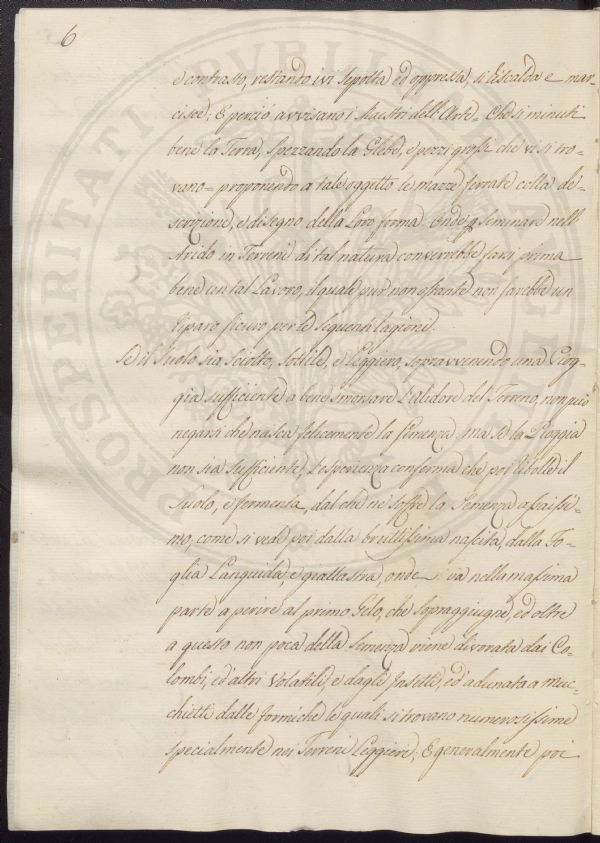 6
e contrasto, restando ivi sepolta ed oppressa, si riscalda e mar-
cisce; E perciò avvisano i Maestri dell'Arte. Che si minuti
bene la Terra, spezzando la Glebe, e pezzi grossi che vi si tro-
vano = proponendo a tale oggetto le mazze ferrate colla de-
scrizione, e disegno della Loro forma. Onde p seminare nell'
Arido in Terreni di tal natura converrebbe farsi prima
bene un tal Lavoro, il quale pur non ostante non sarebbe un
riparo sicuro per le seguenti ragioni.
Se il Suolo sia Sciolto, Sottile, e Leggiero, sopravvenendo una Piog-
gia sufficiente a bene smorzare l'alidore del Terreno, non può
negarsi che nasca felicemente la Semenza, ma se la Pioggia
non sia sufficiente l'esperienza conferma che poi ribolle il
Suolo, e fermenta, dal che ne soffre la Semenza assaissi-
mo, come si vede poi dalla bruttissima nascita, dalla Fo-
glia Languida, e giallastra, onde va nella massima
parte a perire al primo Gelo, che sopraggiugne, ed oltre
a questo non poca della Semenza viene divorata dai Co-
lombi, ed altri Volatili, e dagli Insetti, ed adunata a muc-
chietti dalle formiche le quali si trovano numerosissime
specialmente nei Terreni Leggieri; E generalmente poi
PUBLICAE
PROSPERITATI